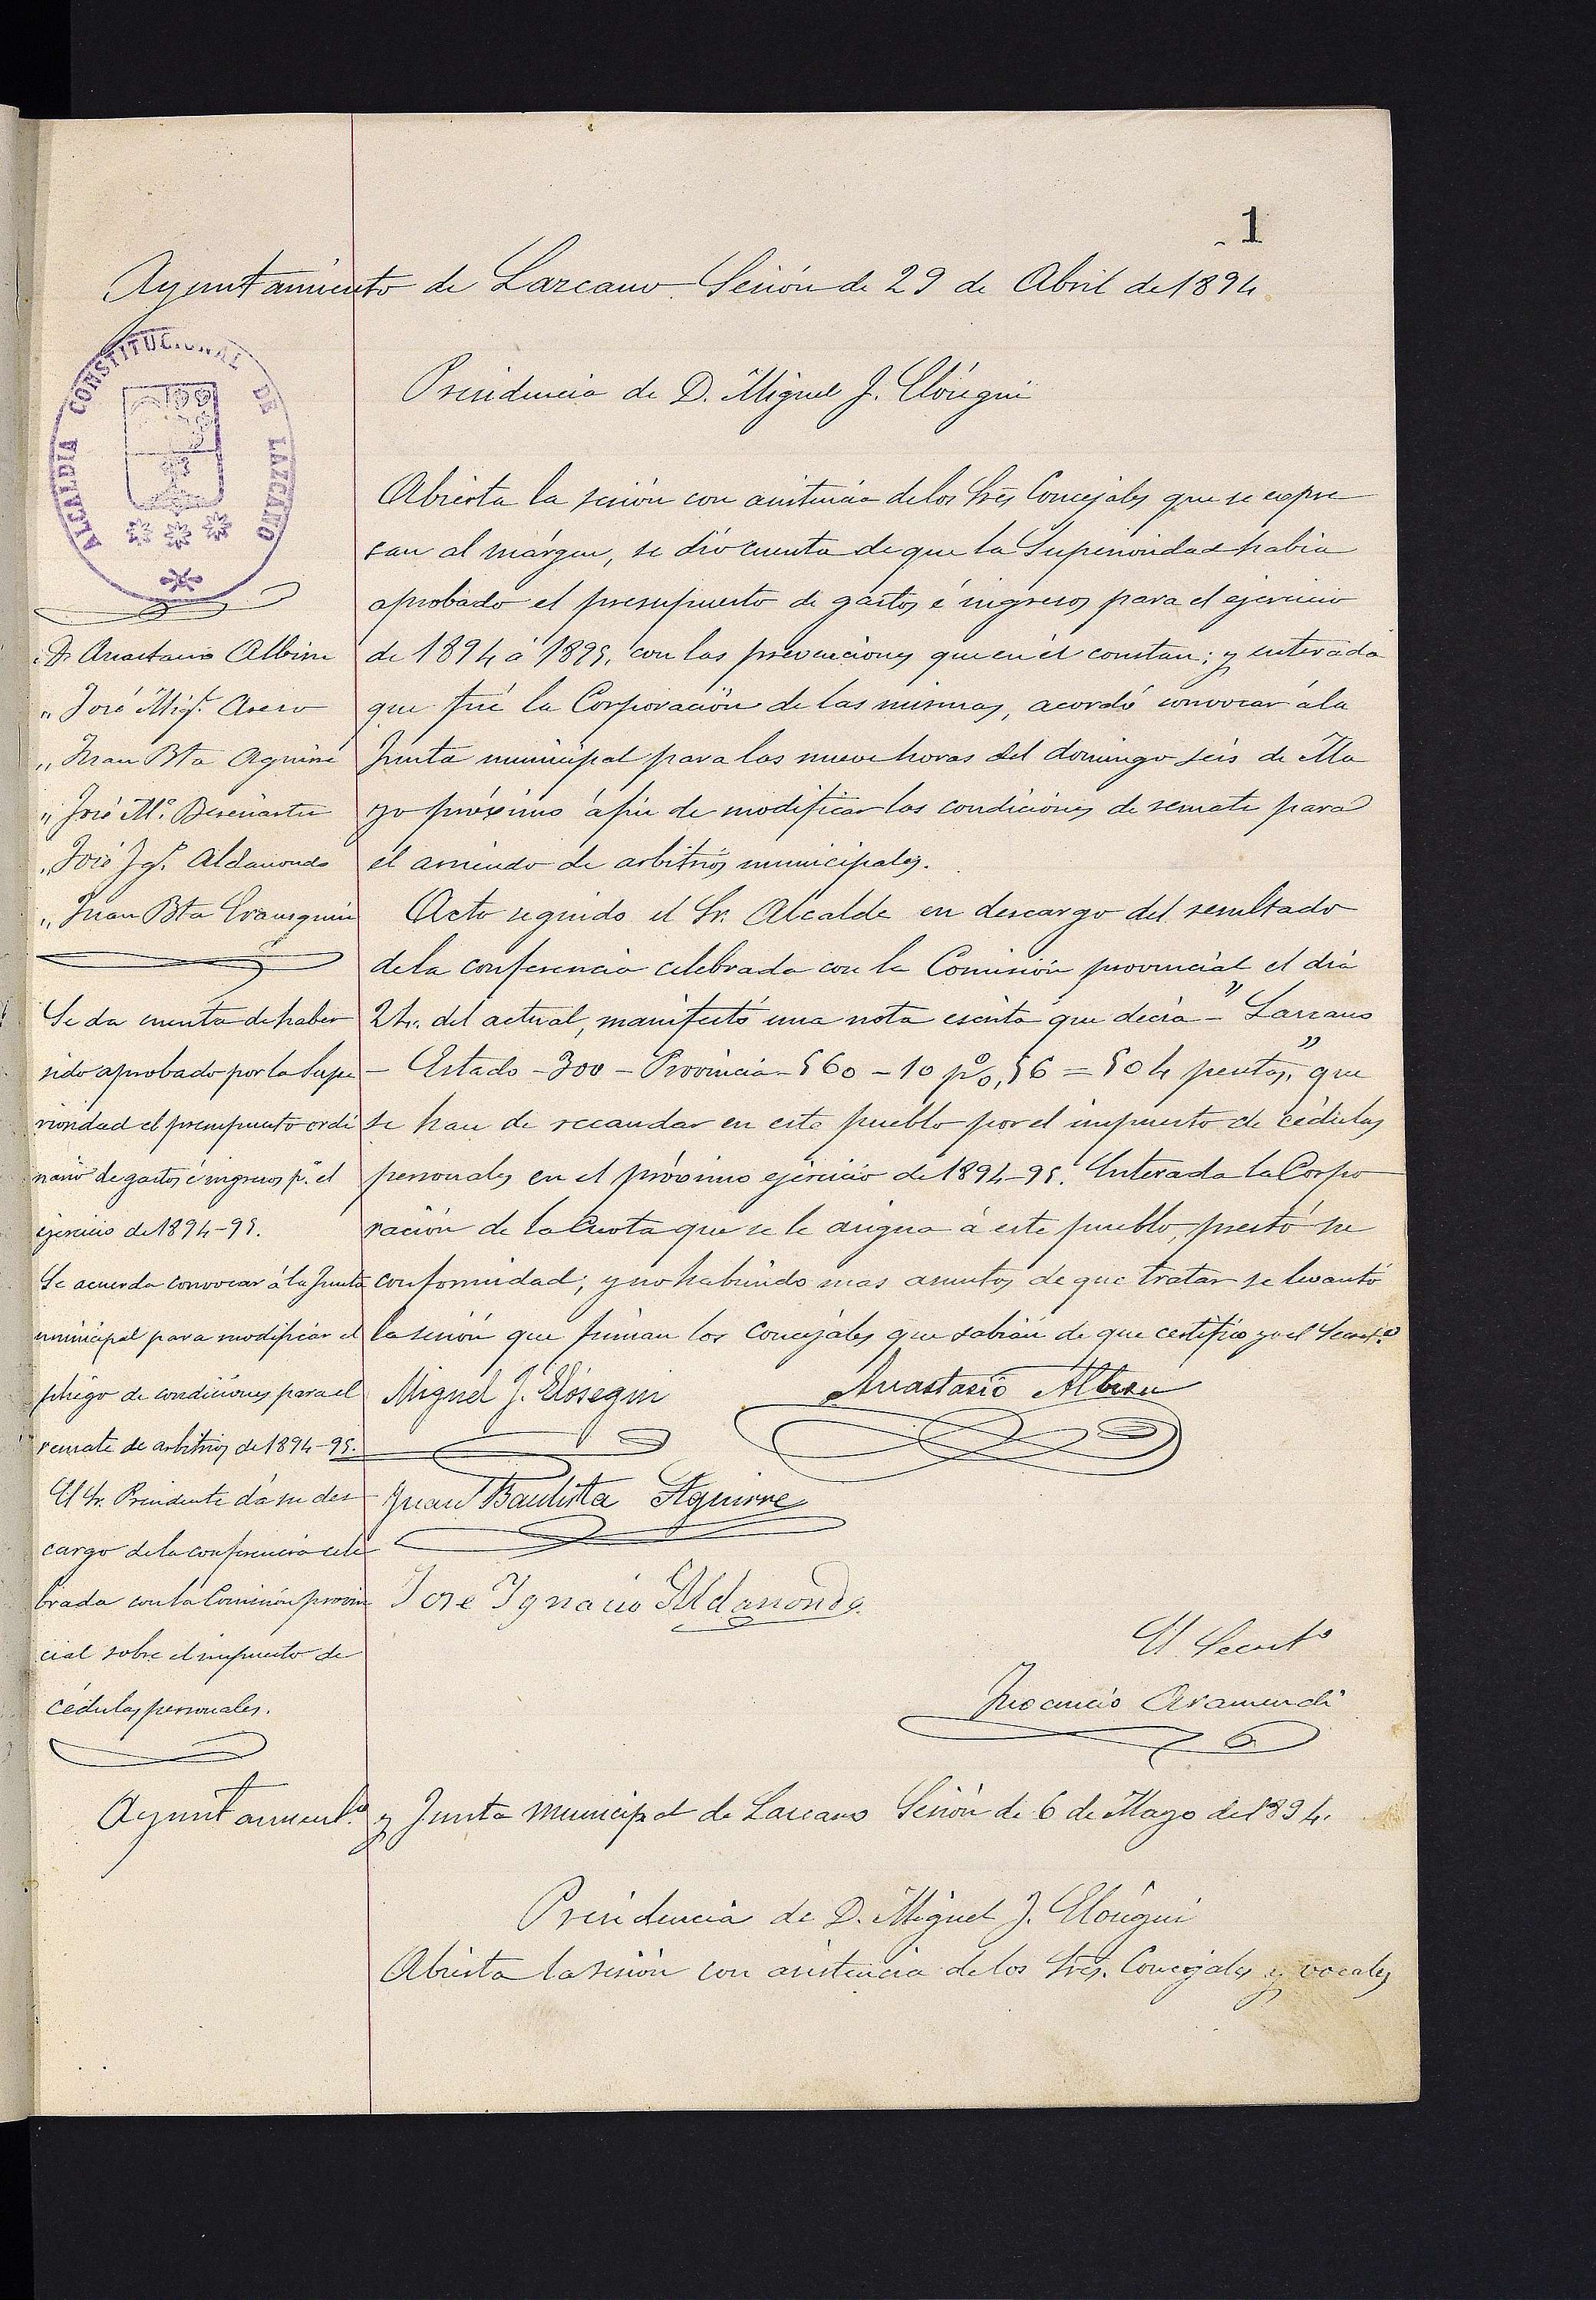 1
Ayuntamiento de Lazcano Sesión de 29 de Abril de 1894
ALCALDIA CONSTITUCIONAL DE LAZCANO
Presidencia de D. Miguel J. Elósegui
Abierta la sesión con asistencia de los Sres Concejales que se expre
san al márgen, se dió cuenta de que la Superioridad habia
aprobado el presupuesto de gastos é ingresos para el ejercicio
de 1894 á 1895, con las prevenciones que en él constan; y enterada
que fué la Corporación de las mismas, acordó convocar á la
Junta municipal para las nueve horas del domingo seis de Ma
yo próximo á fin de modificar las condiciones de remate para
el arriendo de arbitrios municipales.
Acto seguido el Sr. Alcalde en descargo del resultado
de la conferencia celebrada con la Comisión provincial el dia
24. del actual, manifestó una nota escrita que decia - "Lazcano
- Estado - 300 - Provincia - 560 - 10 p%, 56 = 504 pesetas," que
se han de recaudar en este pueblo por el impuesto de cédulas
personales en el próximo ejercicio de 1894-95. Enterada la Corpo
ración de la Cuota que se le asigna á este pueblo, prestó su
conformidad; y no habiendo mas asuntos de que tratar se levantó
la sesión que firman los concejales que sabian de que certifico yo el Secret.º
D. Anastasio Albisu
" José Mig.l
" Juan Bta Aguirre
" José M.ª
" José Ig.º Aldanondo
" Juan Bta
Se da cuenta de haber
sido aprobado por la Supe
rioridad el presupuesto ordi
nario de gastos é ingresos p.ª el
ejercicio de 1894-95.
Se acuerda convocar á la Junta
municipal para modificar el
pliego de condiciones para el
remate de arbitrios de 1894-95.
El Sr. Presidente dá su des
cargo de la conferencia cele
brada con la Comisión provin
cial sobre el impuesto de
cédulas personales.
Miguel J. Elósegui
Anastasio Albisu
Juan Bautista Aguirre
Jose Ignacio Aldanondo.
El Secret.º
Inocencio Aramendi
Ayuntamient.º y Junta municipal de Lazcano Sesión de 6 de Mayo de 1894.
Presidencia de D. Miguel J. Elósegui
Abierta la sesión con asistencia de los Sres. Concejales y vocales